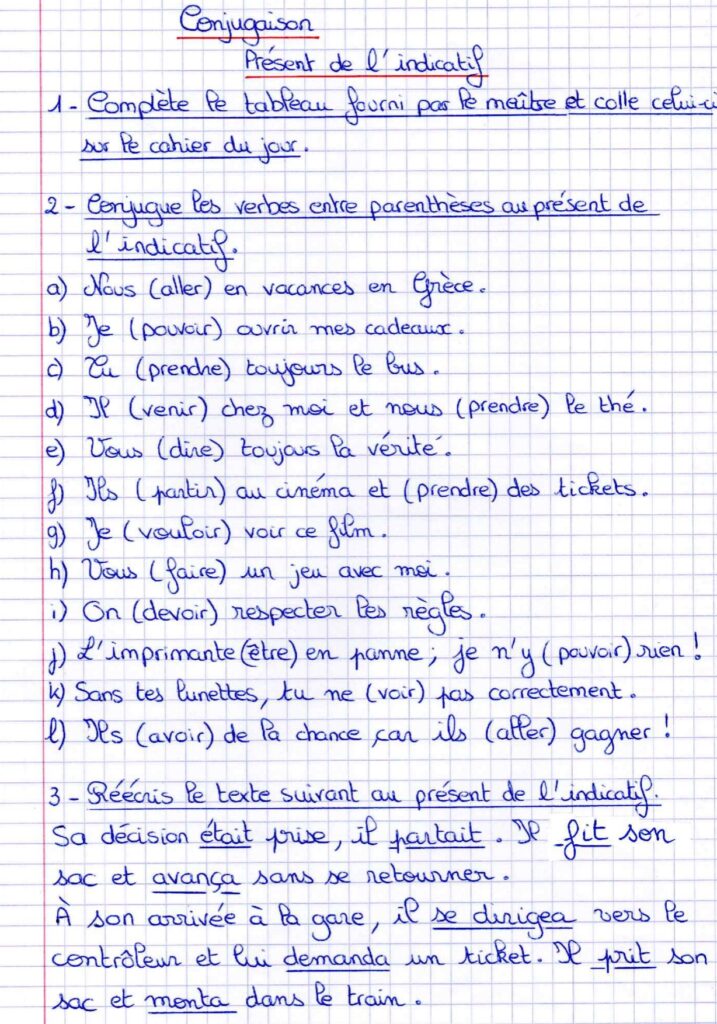 Conjugaison
Présent de l'indicatif
1 - Complète le tableau fourni par le maître et colle celui-ci
sur le cahier du jour.
2 - Conjugue les verbes entre parenthèses au présent de
l'indicatif.
a) Nous (aller) en vacances en Grèce.
b) Je (pouvoir) ouvrir mes cadeaux.
c) Tu (prendre) toujours le bus.
d) Il (venir) chez moi et nous (prendre) le thé.
e) Vous (dire) toujours la vérité.
f) Ils (partir) au cinéma et (prendre) des tickets.
g) Je (vouloir) voir ce film.
h) Vous (faire) un jeu avec moi.
i) On (devoir) respecter les règles.
j) L'imprimante (être) en panne ; je n'y (pouvoir) rien !
k) Sans tes lunettes, tu ne (voir) pas correctement.
l) Ils (avoir) de la chance car ils (aller) gagner !
3 - Réécris le texte suivant au présent de l'indicatif.
Sa décision était prise, il partait. Il fit son
sac et avança sans se retourner.
À son arrivée à la gare, il se dirigea vers le
contrôleur et lui demanda un ticket. Il prit son
sac et monta dans le train.